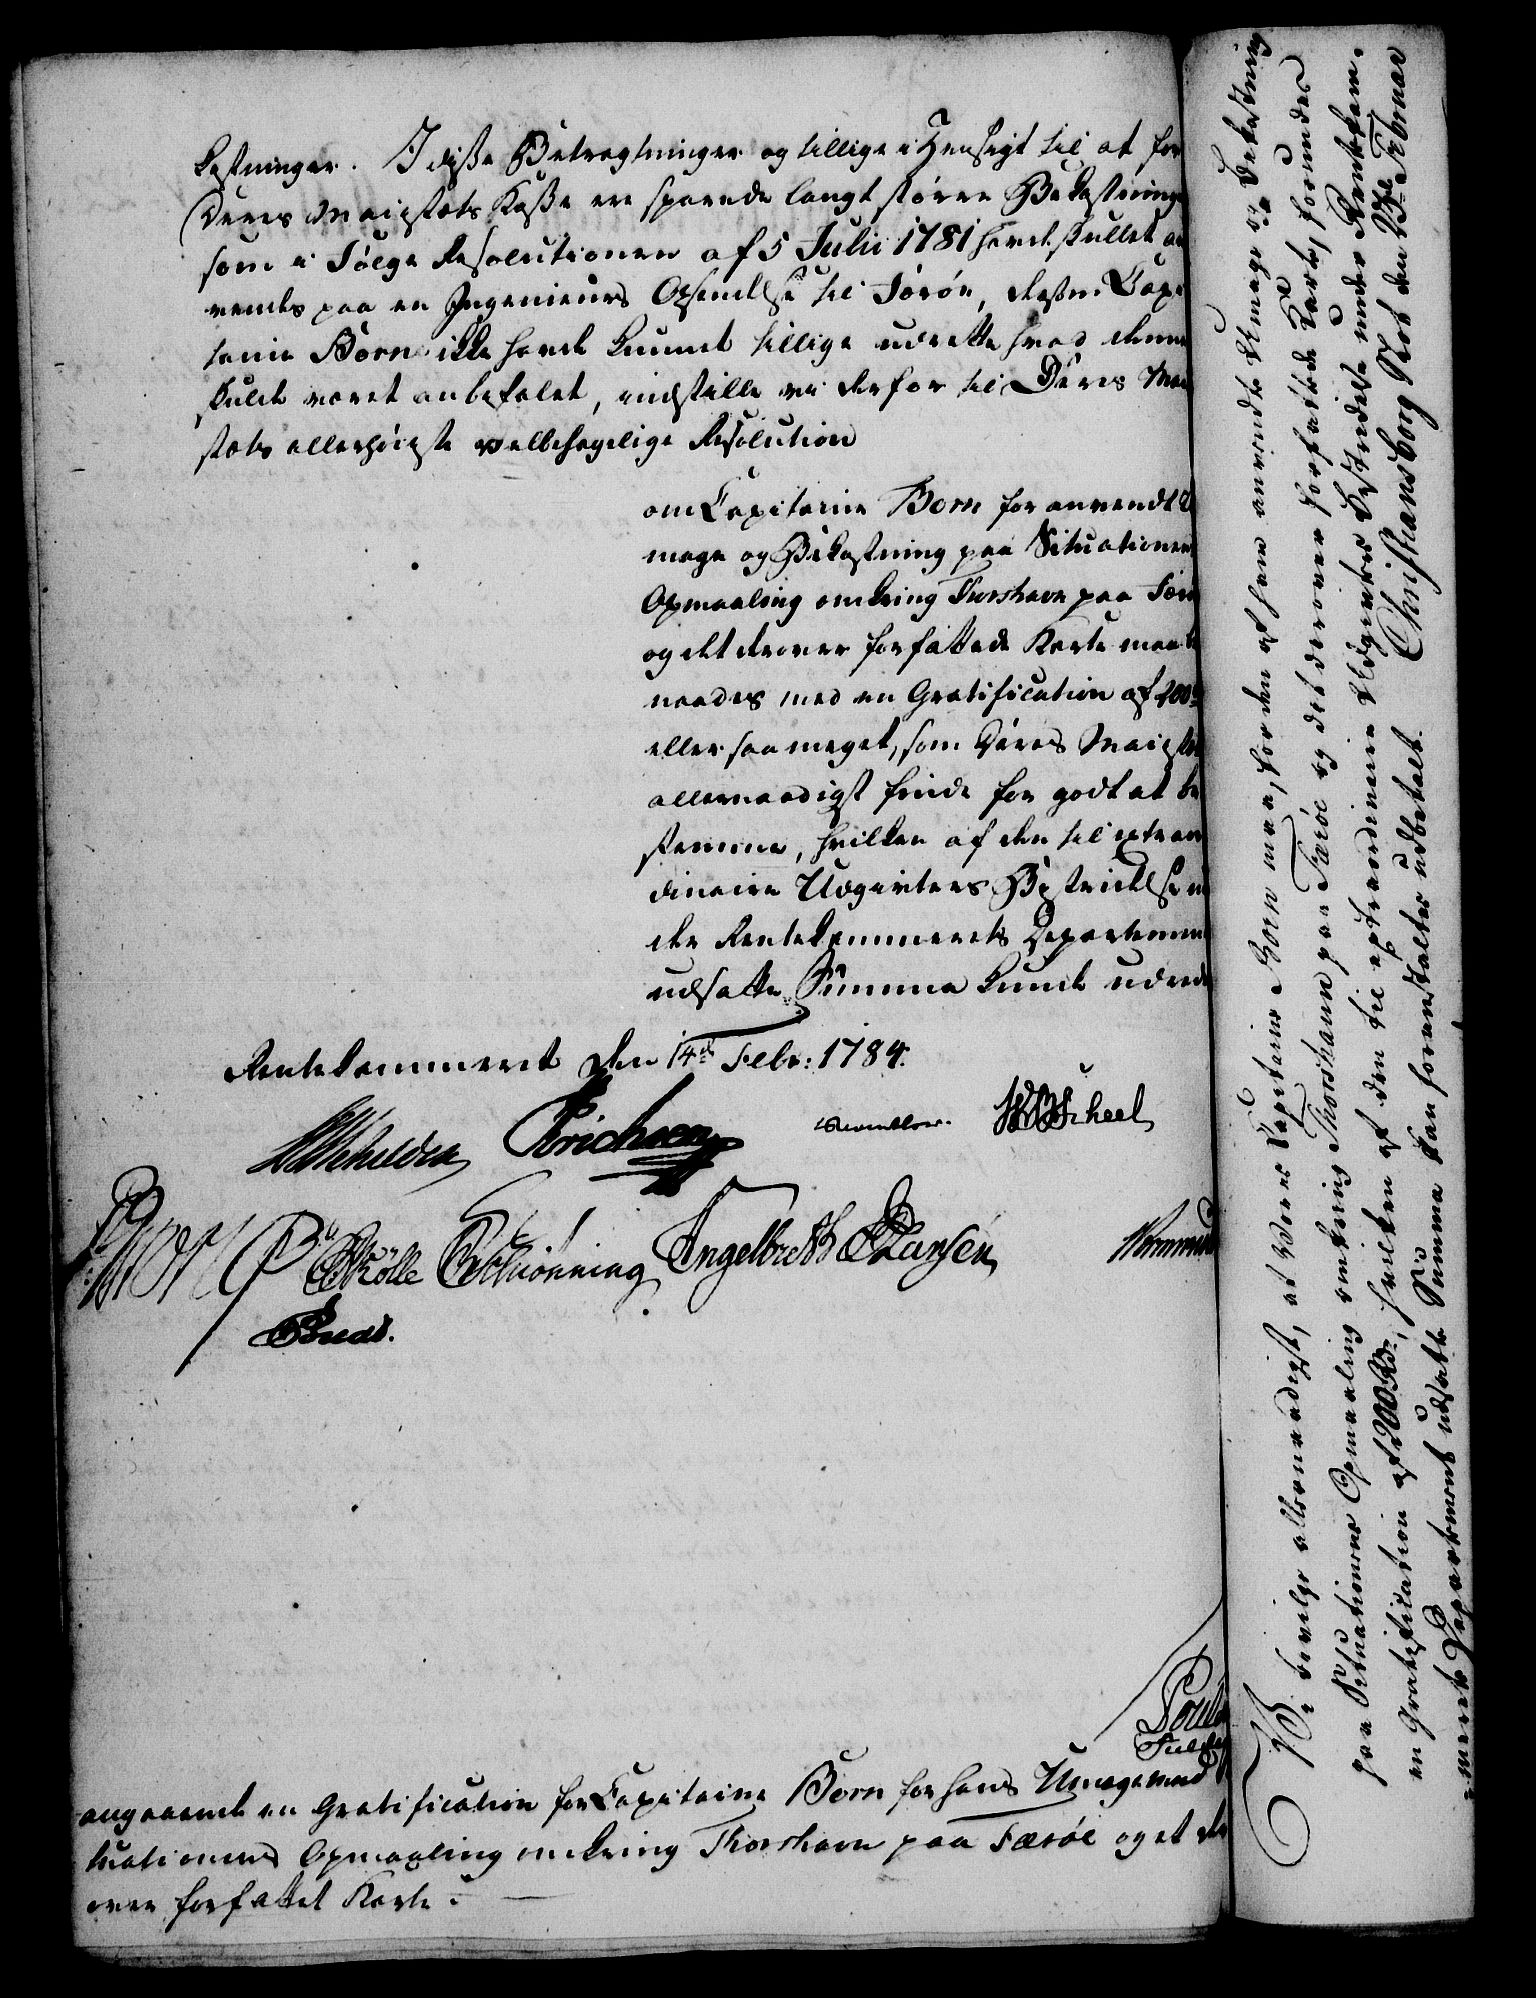 kostninger. I disse Betragtninger og tillige i Hensigt til at for
Deres Maiestæts Kasse ere sparede langt større Bekostninge
som i Følge Resolutionen af 5 Julii 1781 havde skullet an
vendes paa en Ingenieurs Opsendelse til Færøe, dersom Capi
taine Born ikke havde kundet tillige udrette hvad denne
skulde været anbefalet, indstille vi derfor til Deres Mai
stæts allerhøieste velbehagelige Resolution
om Capitaine Born for anvendt U
mage og Bekostning paa Situationens
Opmaaling omkring Thorshavn paa Fær
og det derover forfattede Karte maa be
naades med en Gratification af 200 rd
eller saa meget, som Deres Maiestæt
allernaadigst finde for godt at be
stemme, hvilken af den til extraor
dinaire Udgivters Bestridelse un
der Rentekammerets Departement
udsatte Summa kunde udrede
Rentekammeret den 14de Febr: 1784.
Schilden Erichsen Reventlow. Scheel
Hørn P Krölle Schiønning Engelbreth Hansen Wormsk
angaaende en Gratification for Capitaine Born for hans Umage med
tuationens Opmaaling omkring Thorshavn paa Færöe og et der
over forfattet Karte.
Vi bevilge allernaadigst, at Vores Capitaine Born maa, for den af ham anvendte Umage og Bekostning
paa Situationens Opmaaling omkring Thorshavn paa Færöe og det derover forfattede Kart, forundes
en Gratification af 200 Rd, hvilken af den til extraordinaire Udgivters Bestridelse under Rentekam-
merets Departement udsatte Summa kan foranstaltes udbetalt.
Christiansborg Slot den 23de Februar